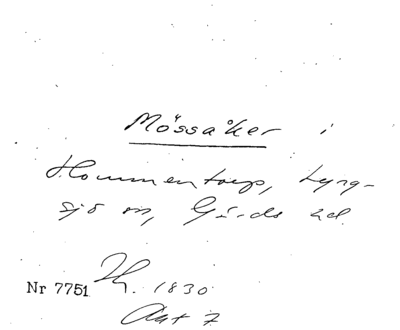 Mössåker i
Hommentorp, Lyng-
sjö sn, Gärds hd.
Nr 7751 Th. 1830
Akt 7